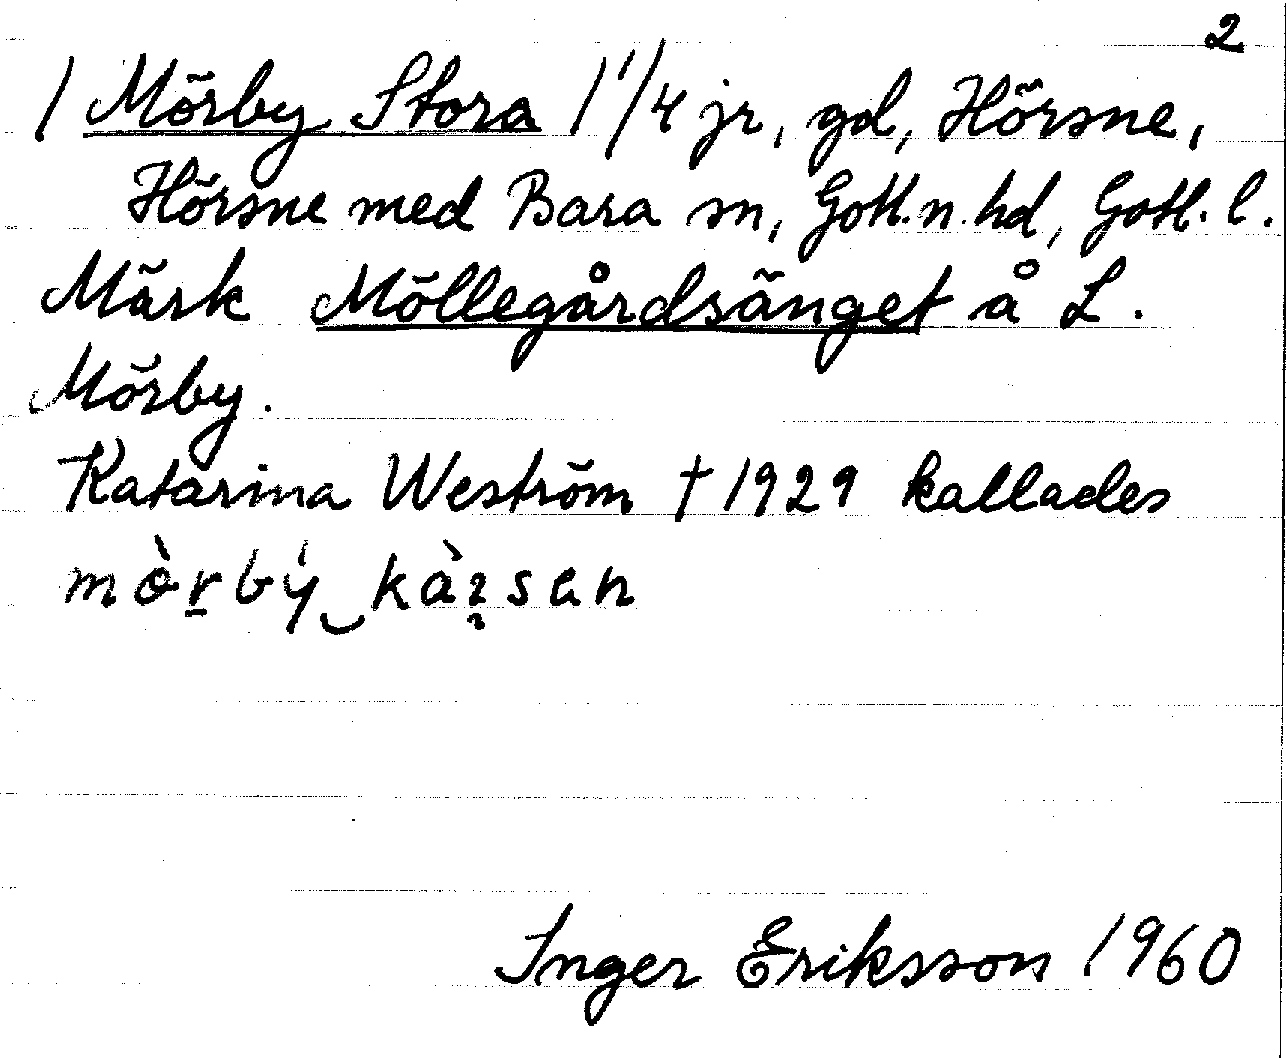 2
/ Mörby Stora / 1/4 jr, gd, Hörsne,
Hörsne med Bara sn, Gotl. n. hd, Gotl. l.
Märk Möllegårdsänget å L.
Mörby.
Katarina Weström † 1929 kallades
Inger Eriksson 1960